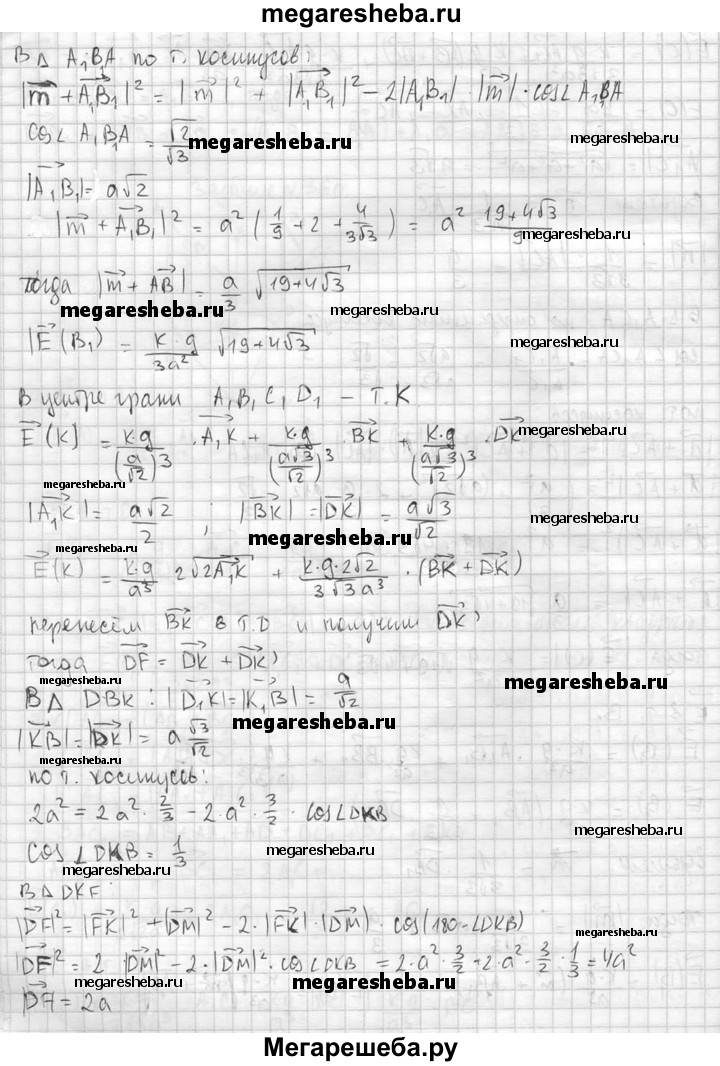 megaresheba.ru
В Δ A₁B₁A по т. косинусов:
|m⃗ + A₁B₁⃗|² = |m⃗|² + |A₁B₁⃗|² − 2|A₁B₁| · |m⃗| · cos∠A₁B₁A
cos∠A₁B₁A = √2/√3
megaresheba.ru
megaresheba.ru
|A₁B₁⃗| = a√2
megaresheba.ru
|m⃗ + A₁B₁⃗|² = a² (1/9 + 2 + 4/(3√3)) = a² (19+4√3)/9
megaresheba.ru
Тогда |m⃗ + AB⃗| = a/3 √(19+4√3)
megaresheba.ru
megaresheba.ru
|E⃗(B₁) = (k·q)/(3a²) √(19+4√3)
megaresheba.ru
В центре грани A₁B₁C₁D₁ – т. K
E⃗(K) = k·q/(a/√2)³ · A₁K⃗ + k·q/(a√3/√2)³ · BK⃗ + k·q/(a√3/√2)³ · DK⃗
megaresheba.ru
megaresheba.ru
|A₁K⃗| = a√2/2 ; |BK⃗| = |DK⃗| = a√3/√2
megaresheba.ru
megaresheba.ru
E⃗(K) = k·q/a³ 2√2A₁K⃗ + k·q·2√2/(3√3a³) · (BK⃗ + DK⃗)
перенесём BK⃗ в т. D и получим DK⃗'
тогда DF⃗ = DK⃗ + DK⃗'
megaresheba.ru
megaresheba.ru
В Δ DBK : |D₁K⃗| = |K₁B⃗| = a/√2
megaresheba.ru
|KB⃗| = |DK⃗| = a √3/√2
megaresheba.ru
по т. косинусов:
2a² = 2a² · 2/3 − 2·a² · 3/2 · cos∠DKB
megaresheba.ru
cos∠DKB = 1/3
megaresheba.ru
megaresheba.ru
В Δ DKF:
|DF⃗|² = |FK⃗|² + |DM⃗|² − 2·|FK⃗|·|DM⃗| · cos(180−∠DKB)
megaresheba.ru
|DF⃗|² = 2 |DM⃗|² − 2·|DM⃗|² · cos∠DKB = 2·a² · 3/2 + 2·a² · 3/2 · 1/3 = 4a²
megaresheba.ru
|DF⃗ = 2a
megaresheba.ru
Мегарешеба.ру